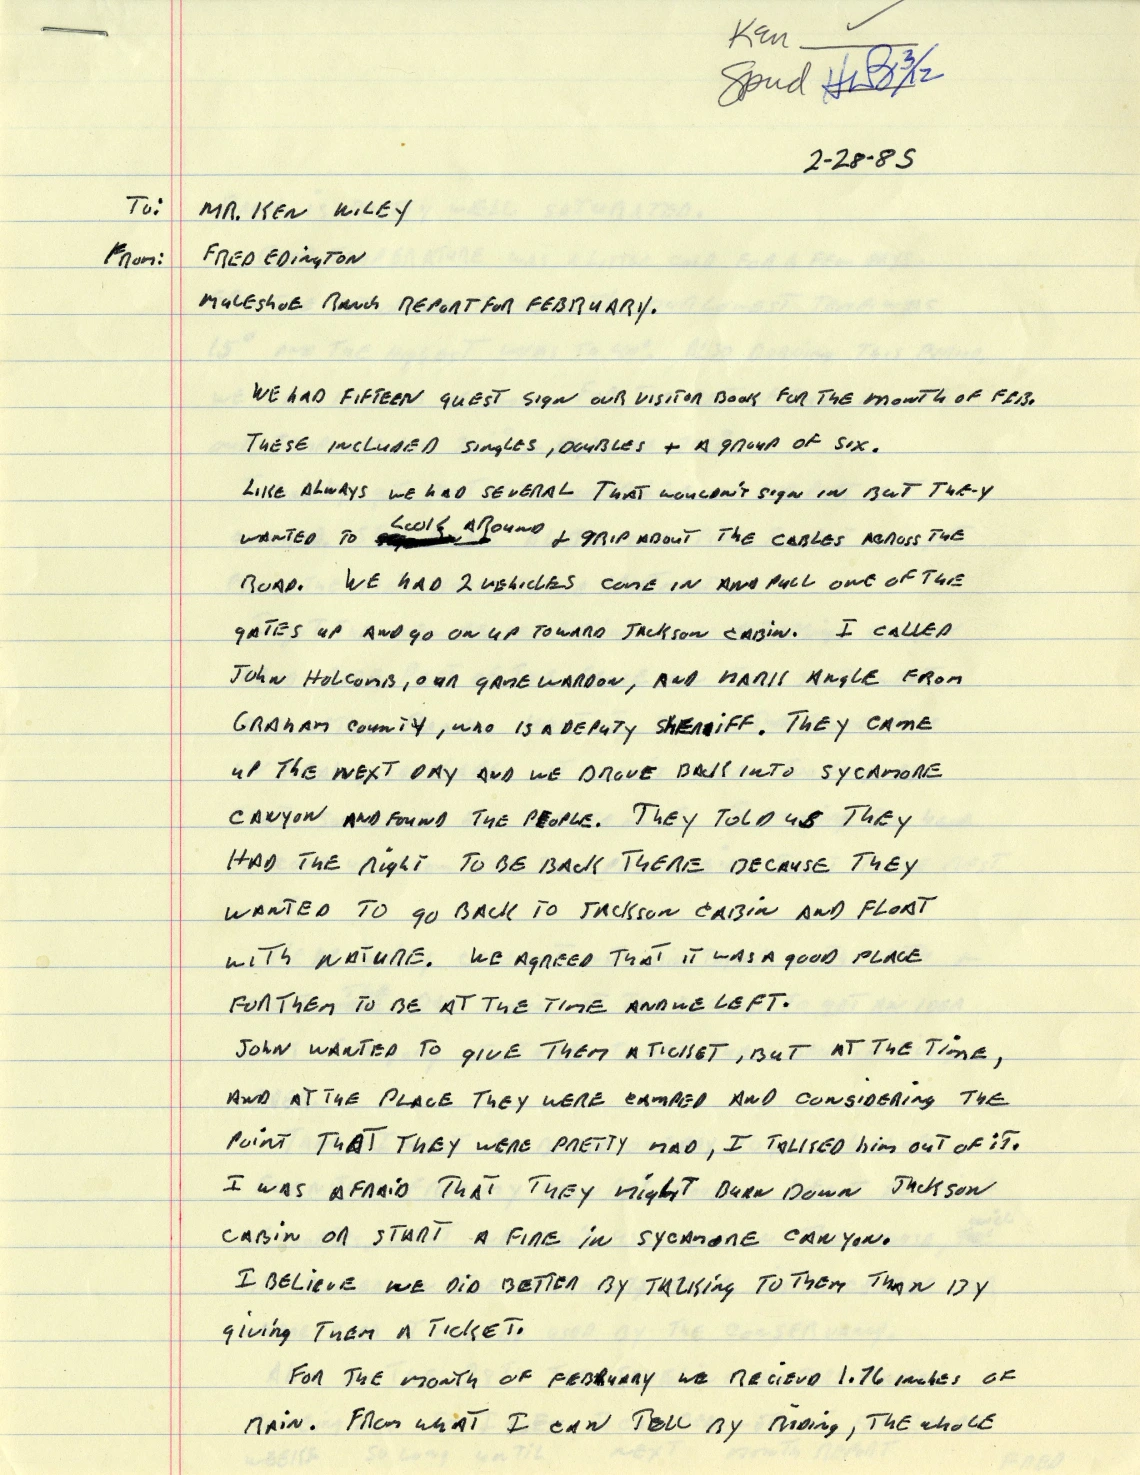 Ken ✓
Spud HWB 3/12
2-28-85
To: MR. KEN WILEY
From: FRED EDington
MULESHOE Ranch REPORT FOR FEBRUARY.
WE HAD FIFTEEN GUEST SIGN OUR VISITOR BOOK FOR THE MONTH OF FEB.
THESE INCLUDED SINGLES, DOUBLES + A GROUP OF SIX.
LIKE ALWAYS WE HAD SEVERAL THAT WOULDN'T SIGN IN BUT THEY
WANTED TO LOOK AROUND & GRIP ABOUT THE CABLES ACROSS THE
ROAD. WE HAD 2 VEHICLES COME IN AND PULL ONE OF THE
GATES UP AND GO ON UP TOWARD JACKSON CABIN. I CALLED
JOHN HOLCOMB, OUR GAME WARDON, AND MARK ANGLE FROM
GRAHAM COUNTY, WHO IS A DEPUTY SHERRIFF. THEY CAME
UP THE NEXT DAY AND WE DROVE BACK INTO SYCAMORE
CANYON AND FOUND THE PEOPLE. THEY TOLD US THEY
HAD THE RIGHT TO BE BACK THERE BECAUSE THEY
WANTED TO GO BACK TO JACKSON CABIN AND FLOAT
WITH NATURE. WE AGREED THAT IT WAS A GOOD PLACE
FOR THEM TO BE AT THE TIME AND WE LEFT.
JOHN WANTED TO GIVE THEM A TICKET, BUT AT THE TIME,
AND AT THE PLACE THEY WERE CAMPED AND CONSIDERING THE
POINT THAT THEY WERE PRETTY MAD, I TALKED HIM OUT OF IT.
I WAS AFRAID THAT THEY MIGHT BURN DOWN JACKSON
CABIN OR START A FIRE IN SYCAMORE CANYON.
I BELIEVE WE DID BETTER BY TALKING TO THEM THAN BY
GIVING THEM A TICKET.
FOR THE MONTH OF FEBRUARY WE RECIEVD 1.76 INCHES OF
RAIN. FROM WHAT I CAN TELL BY RIDING, THE WHOLE